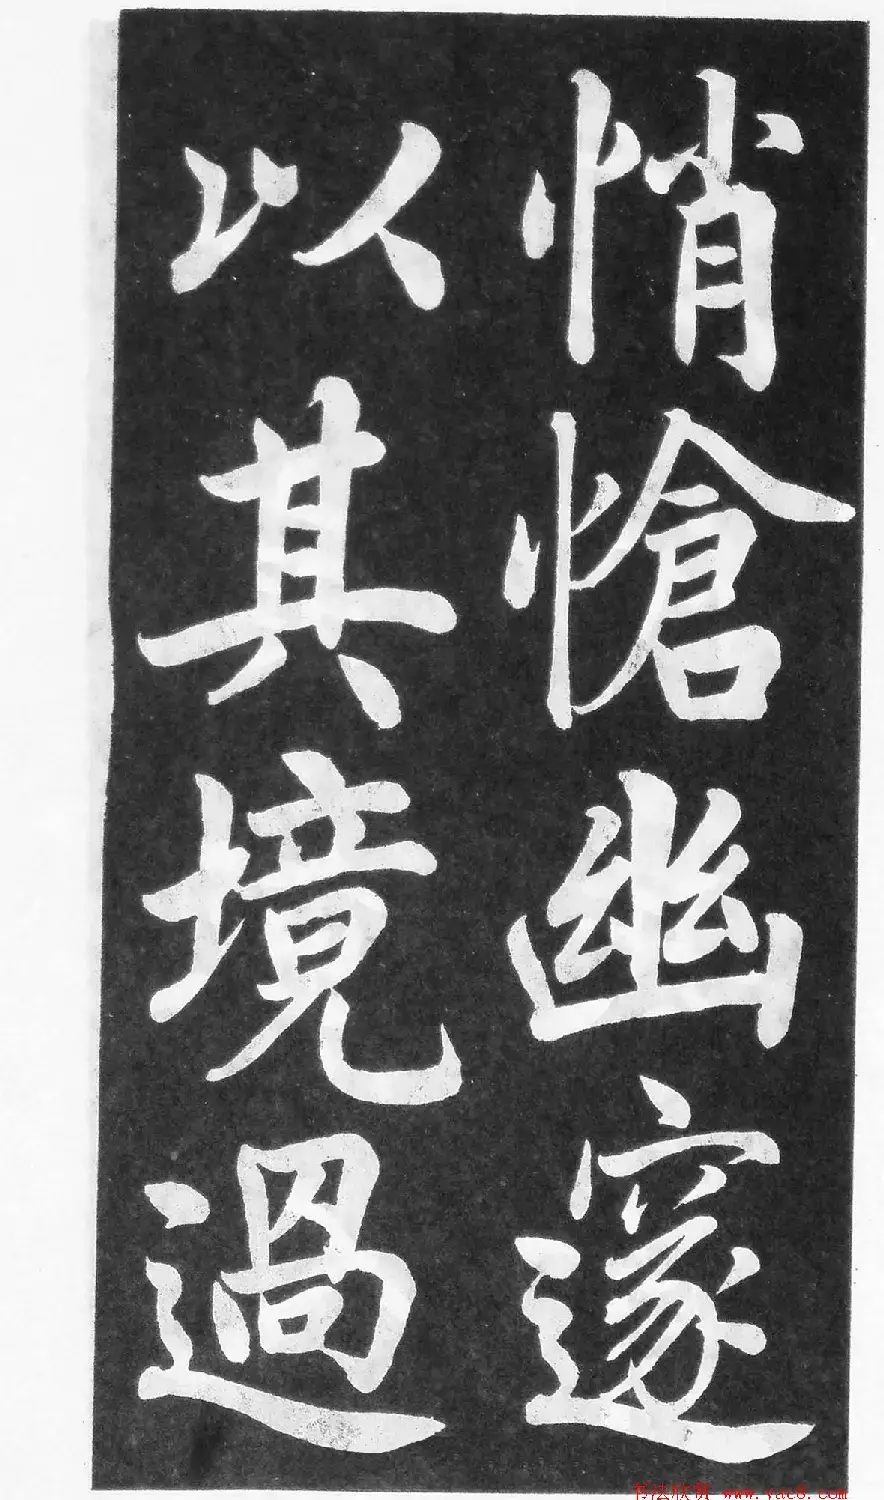 悄愴幽邃
以其境過
书法欣赏 www.yac8.com